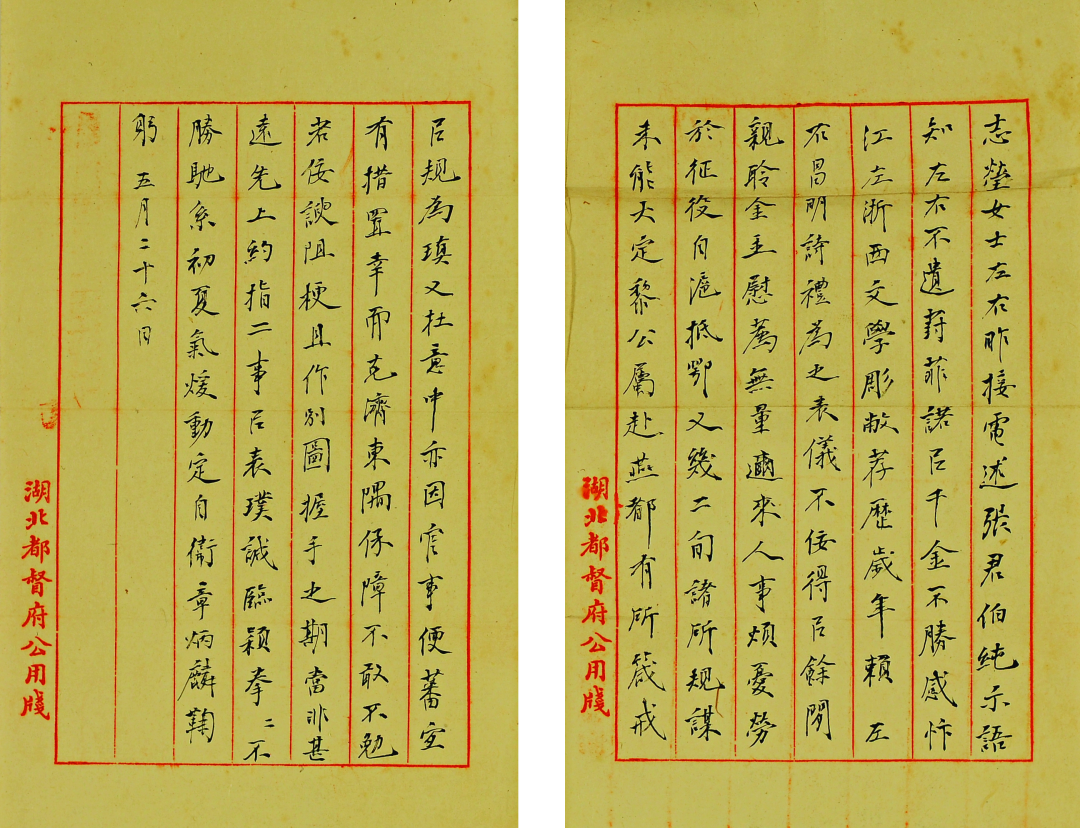 志瑩女士左右昨接電述張君伯純示語
知左右不遺葑菲諾㠯千金不勝感忭
江左浙西文學彫敝荐歷歲年賴左
右昌明詩禮為之表儀不佞得㠯餘閒
親聆金玉慰薦無量邇來人事煩憂勞
於征役自滬抵鄂又幾二旬諸所規謀
未能大定黎公屬赴燕都有所箴戒
湖北都督府公用牋
㠯規為瑱又杜意中亦因官事便蕃室
有措置幸而克濟東隅保障不敢不勉
若佞諛阻梗且作別圖握手之期當非甚
遠先上約指二事㠯表璞誠臨穎拳二不
勝馳系初夏氣煖動定自衞章炳麟鞠
躬 五月二十六日
湖北都督府公用牋